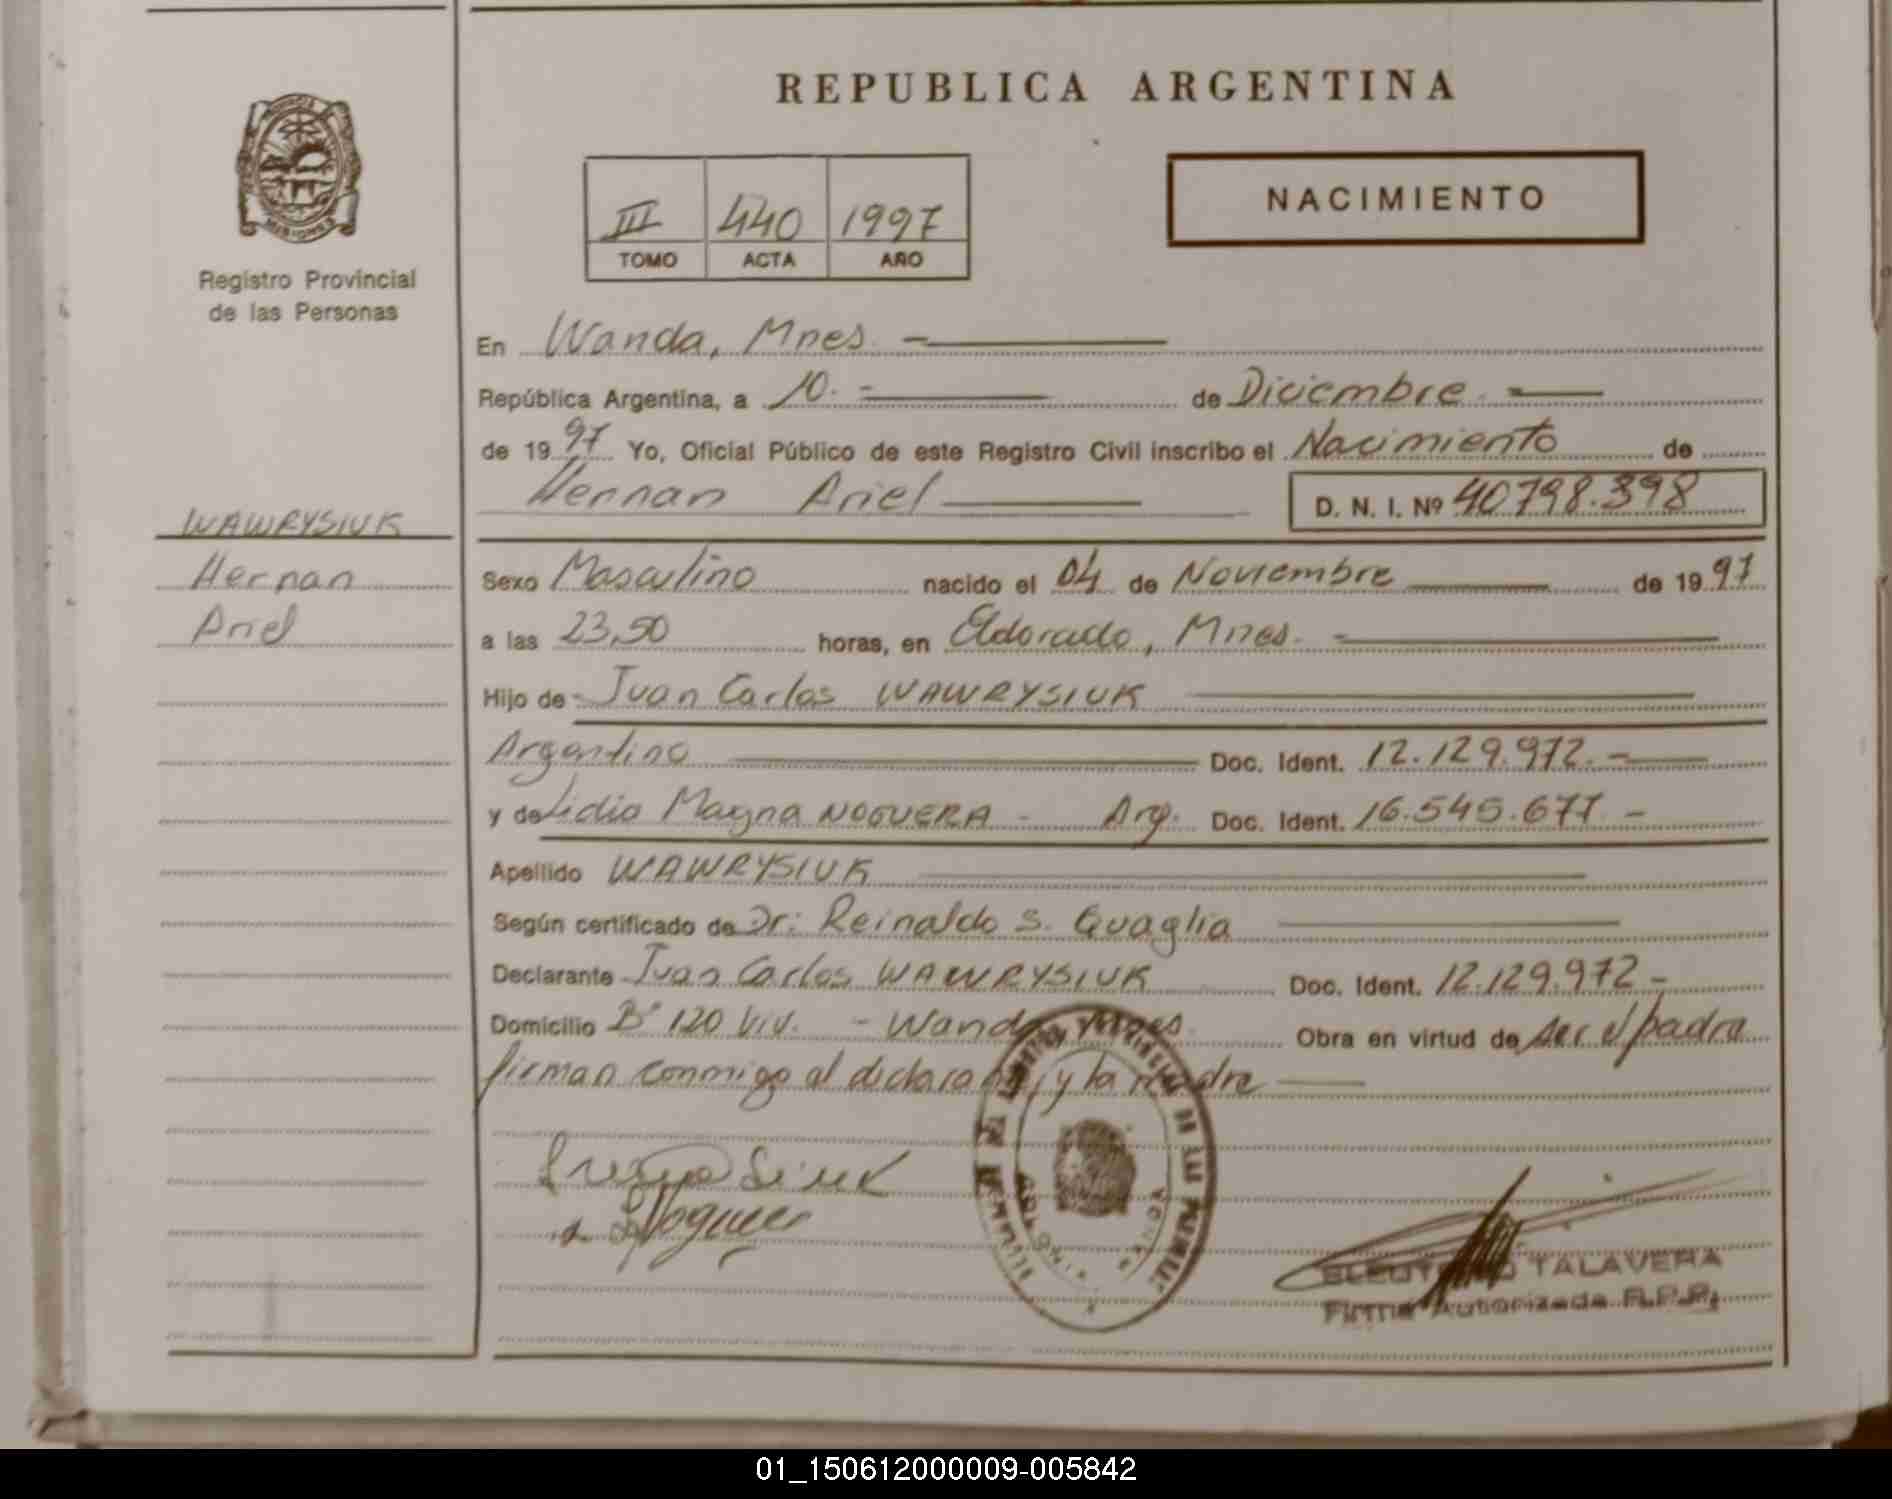 REPUBLICA ARGENTINA
NACIMIENTO
III 440 1997
TOMO ACTA AÑO
Registro Provincial
de las Personas
WAWRYSIUK
Hernan
Ariel
En Wanda, Mnes.
República Argentina, a 10. de Diciembre.
de 1997 Yo, Oficial Público de este Registro Civil inscribo el Nacimiento de
Hernan Ariel D. N. I. Nº 40798.398
Sexo Masculino nacido el 04 de Noviembre de 1997
a las 23,50 horas, en Eldorado, Mnes.
Hijo de Juan Carlos WAWRYSIUK
Argentino Doc. Ident. 12.129.972.-
y de Lidia Magna NOGUERA - Arg. Doc. Ident. 16.545.677.-
Apellido WAWRYSIUK
Según certificado de Dr: Reinaldo S. Quaglia
Declarante Juan Carlos WAWRYSIUK Doc. Ident. 12.129.972-
Domicilio Bº 120 Viv. - Wanda, Mnes. Obra en virtud de ser el padre
firman conmigo el declarante, y la madre
Noguera
TALAVERA
Firma Autorizada R.P.P.
01_150612000009-005842